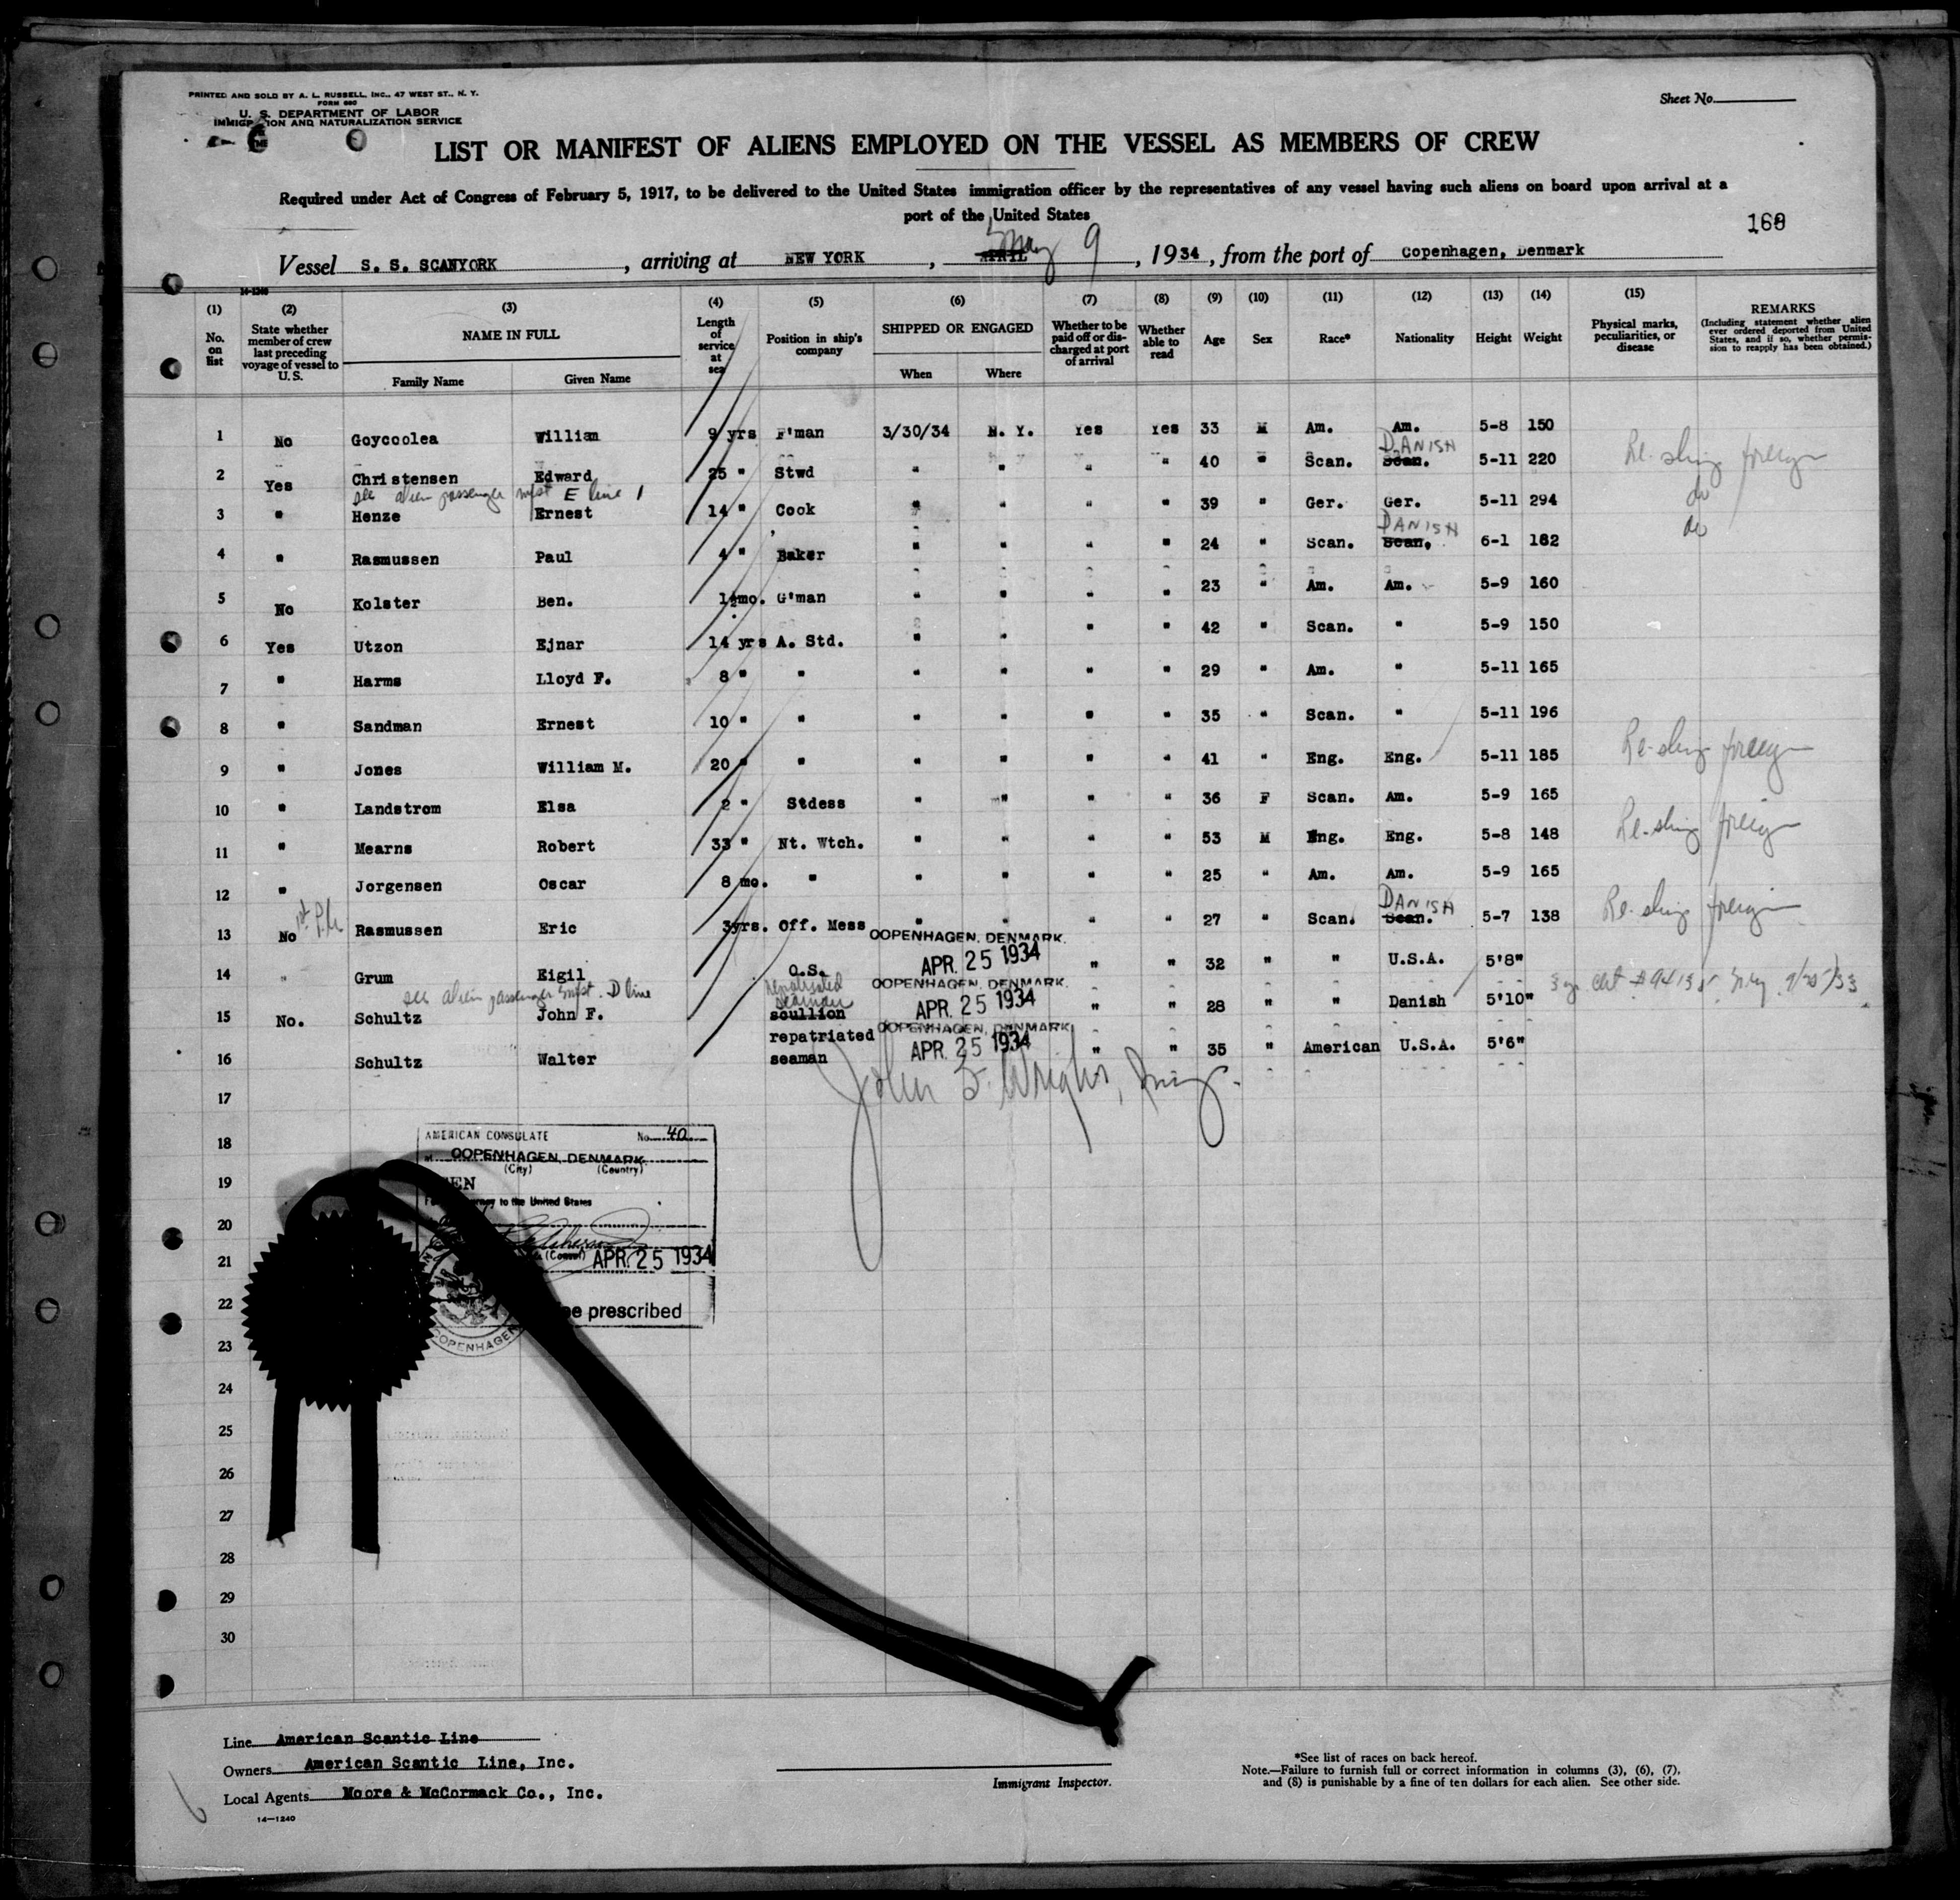 PRINTED AND SOLD BY A. L. RUSSELL, INC., 47 WEST ST., N. Y.
FORM 680
U. S. DEPARTMENT OF LABOR
IMMIGRATION AND NATURALIZATION SERVICE
Sheet No.
LIST OR MANIFEST OF ALIENS EMPLOYED ON THE VESSEL AS MEMBERS OF CREW
Required under Act of Congress of February 5, 1917, to be delivered to the United States immigration officer by the representatives of any vessel having such aliens on board upon arrival at a
port of the United States
160
Vessel S. S. SCANYORK, arriving at NEW YORK, APRIL May 9, 1934, from the port of Copenhagen, Denmark
14-1240
(1) No. on list
(2) State whether member of crew last preceding voyage of vessel to U. S.
(3) NAME IN FULL Family Name Given Name
(4) Length of service at sea
(5) Position in ship's company
(6) SHIPPED OR ENGAGED When Where
(7) Whether to be paid off or discharged at port of arrival
(8) Whether able to read
(9) Age
(10) Sex
(11) Race*
(12) Nationality
(13) Height
(14) Weight
(15) Physical marks, peculiarities, or disease
REMARKS (Including statement whether alien ever ordered deported from United States, and if so, whether permission to reapply has been obtained.)
1 No Goycoolea William 9 yrs F'man 3/30/34 N. Y. Yes Yes 33 M Am. Am. 5-8 150
2 Yes Christensen Edward 25 " Stwd " " " " 40 " Scan. Scan. DANISH 5-11 220 Re-shing foreign
see alien passenger mfst E line 1
3 " Henze Ernest 14 " Cook " " " " 39 " Ger. Ger. 5-11 294 do
4 " Rasmussen Paul 4 " Baker " " " " 24 " Scan. Scan. DANISH 6-1 182 do
5 No Kolster Ben. 1½mo. G'man " " " " 23 " Am. Am. 5-9 160
6 Yes Utzon Ejnar 14 yrs A. Std. " " " " 42 " Scan. " 5-9 150
7 " Harms Lloyd F. 8 " " " " " " 29 " Am. " 5-11 165
8 " Sandman Ernest 10 " " " " " " 35 " Scan. " 5-11 196
9 " Jones William M. 20 " " " " " " 41 " Eng. Eng. 5-11 185 Re-shing foreign
10 " Landstrom Elsa 2 " Stdess " " " " 36 F Scan. Am. 5-9 165
11 " Mearns Robert 33 " Nt. Wtch. " " " " 53 M Eng. Eng. 5-8 148 Re-shing foreign
12 " Jorgensen Oscar 8 mo. " " " " " 25 " Am. Am. 5-9 165
13 No Rasmussen Eric 3yrs. Off. Mess " " " " 27 " Scan. Scan. DANISH 5-7 138 Re-shing foreign
14 " Grum Eigil O.S. COPENHAGEN, DENMARK. APR. 25 1934 " " 32 " " U.S.A. 5'8"
see alien passenger mfst. D line
15 No. Schultz John F. scullion repatriated seaman COPENHAGEN, DENMARK. APR. 25 1934 " " 28 " " Danish 5'10"
16 Schultz Walter repatriated seaman COPENHAGEN, DENMARK APR. 25 1934 " " 35 " American U.S.A. 5'6"
17
18
19
20
21
22
23
24
25
26
27
28
29
30
AMERICAN CONSULATE No. 40
at COPENHAGEN, DENMARK.
(City) (Country)
to the United States
(Consul) APR. 25 1934
prescribed
COPENHAGEN
Line American Scantic Line
Owners American Scantic Line, Inc.
Local Agents Moore & McCormack Co., Inc.
14-1240
Immigrant Inspector.
*See list of races on back hereof.
Note.—Failure to furnish full or correct information in columns (3), (6), (7),
and (8) is punishable by a fine of ten dollars for each alien. See other side.